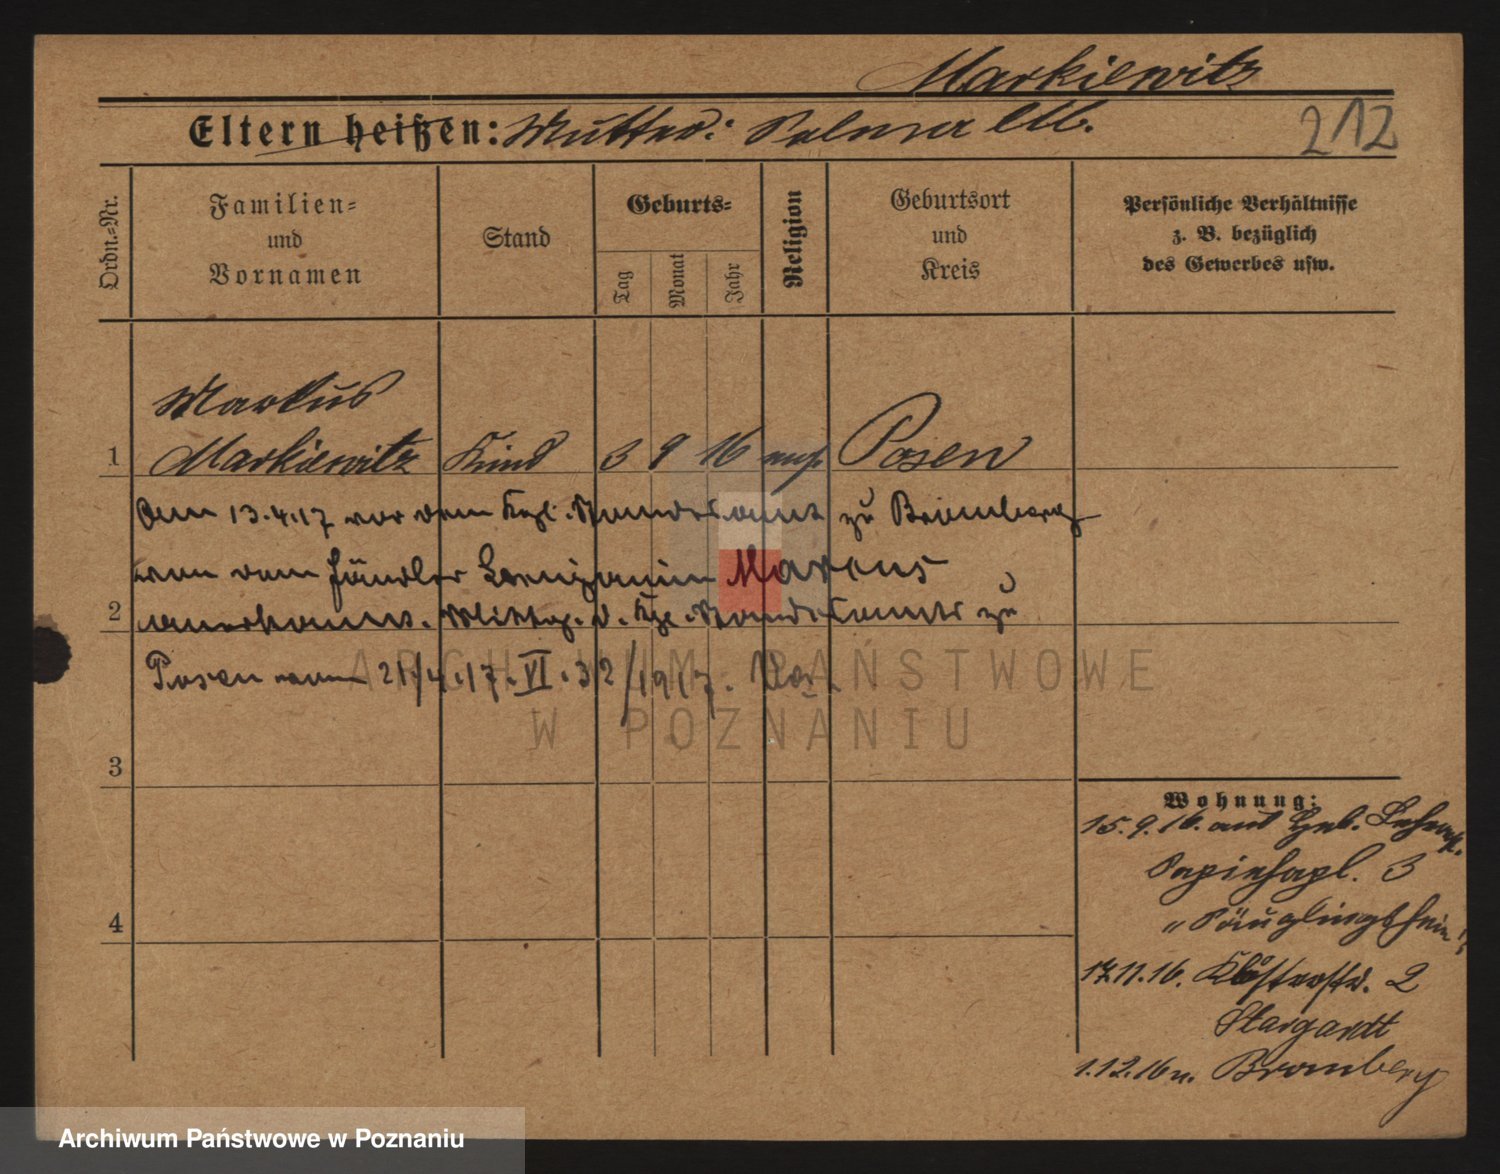 Markiewitz
Eltern heißen: Mutter: Salmea
212
Ordn.-Nr.
Familien- und Vornamen
Stand
Geburts-
Tag
Monat
Jahr
Religion
Geburtsort und Kreis
Persönliche Verhältnisse
z. B. bezüglich
des Gewerbes usw.
Markus
1 Markiewitz Kind 3 9 16 mos. Posen
Am 13.4.17 vor dem Kgl. Standesamt zu Bromberg
von dem Händler Benjamin Marcus
2 anerkannt. Mitteg. d. Kgl. Standesamts zu
Posen vom 21/4.17. VI. 32/1917.
3
4
Wohnung:
15.9.16. aus Geb.
3
" Säuglingsheim "
17.11.16. Klosterstr. 2
Stargardt
1.12.16 n. Bromberg
ARCHIWUM PAŃSTWOWE
W POZNANIU
Archiwum Państwowe w Poznaniu